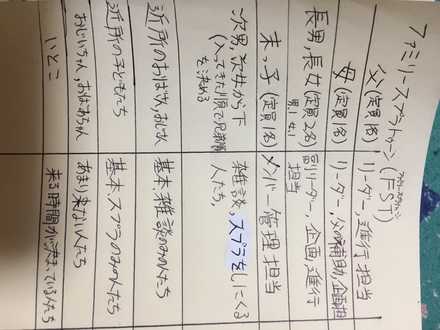 ファミリースプラトゥーン(FST)
父(定員1名) リーダー、進行担当
母(定員1名) リーダー、父の補助、企画担
長男、長女(定員2名) 副リーダー、企画、進行
男1女1 担当
末っ子(定員1名) メンバー管理担当
次男、次女から下 雑談、スプラをしにくる
(入ってきた順で兄弟構 人たち。
を決める
近所のおばさん、おじさん 基本、雑談のみの人たち
近所の子どもたち 基本、スプラのみの人たち
おじいちゃん、おばあちゃん あまり来ない人たち
いとこ 来る時間が決まっている人たち